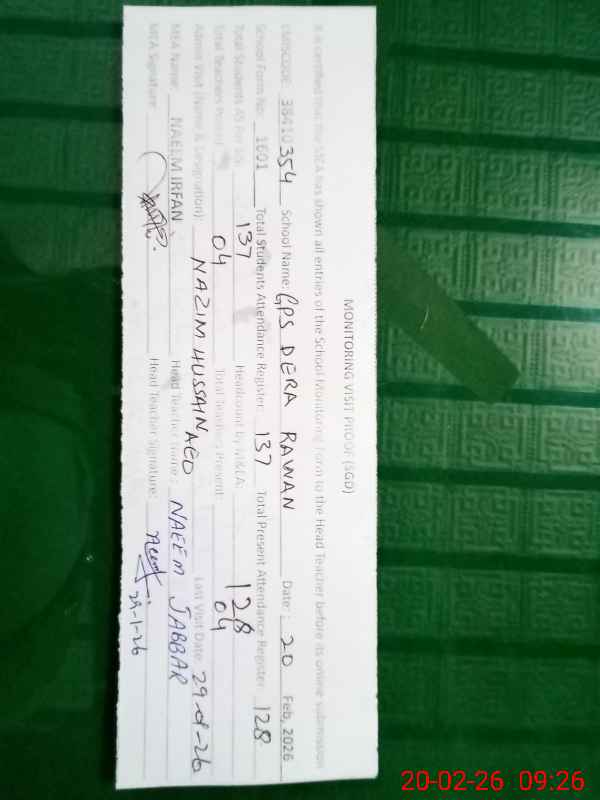 MONITORING VISIT PROOF (SGD)
It is certified that the MEA has shown all entries of the School Monitoring Form to the Head Teacher before its online submission
EMISCODE: 38410354 School Name: GPS DERA RAWAN Date: 20 Feb, 2026
School Form No. 1601 Total Students Attendance Register: 137 Total Present Attendance Register: 128
Total Students AS Per 137 Headcount by MEA: 128
Total Teachers Posted 04 Total Teachers Present: 04
Admin Visit (Name & Designation): NAZIM HUSSAIN AEO Last Visit Date: 29-01-26
MEA Name: NAEEM IRFAN Head Teacher Name: NAEEM JABBAR
MEA Signature: Head Teacher Signature: 29-1-26
20-02-26 09:26